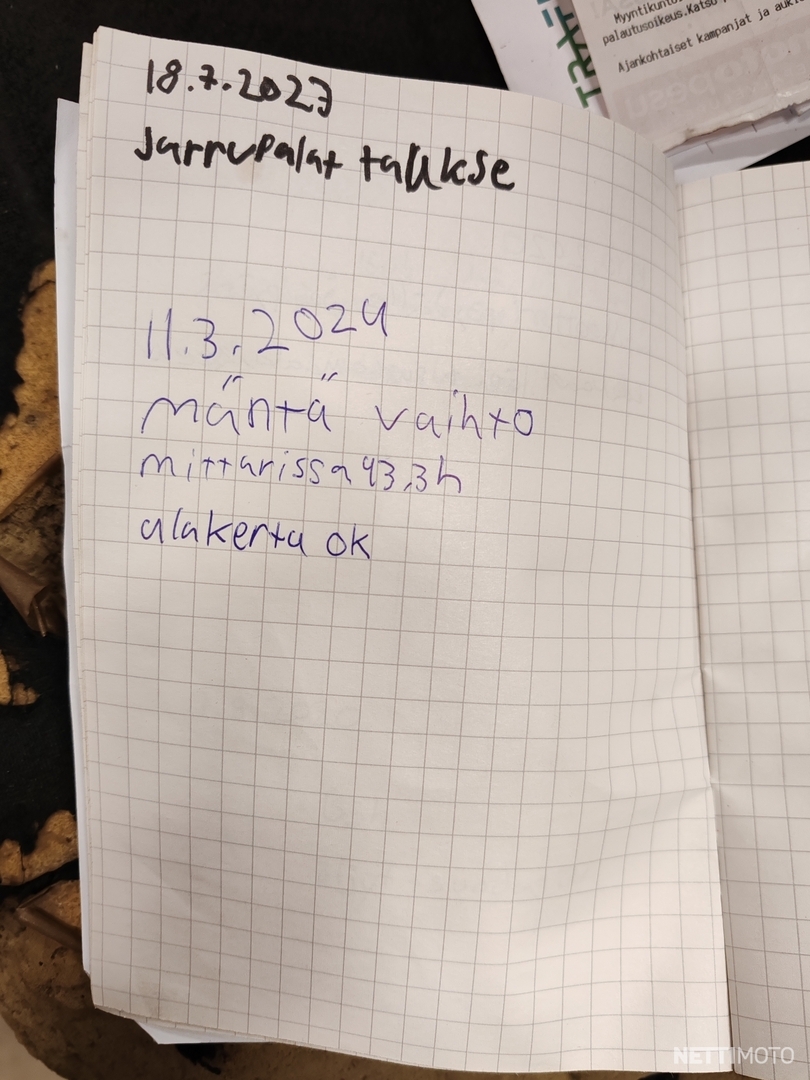 Myyntikunto
palautusoikeus.Katso
Ajankohtaiset kampanjat ja aukio
18.7.2023
Jarrupalat taakse
11.3.2024
mäntä vaihto
mittarissa 43,3h
alakerta ok
NETTIMOTO